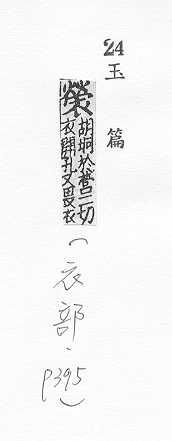 24
玉篇
褮胡坰於營二切
衣開孔又鬼衣
(衣部·P395)